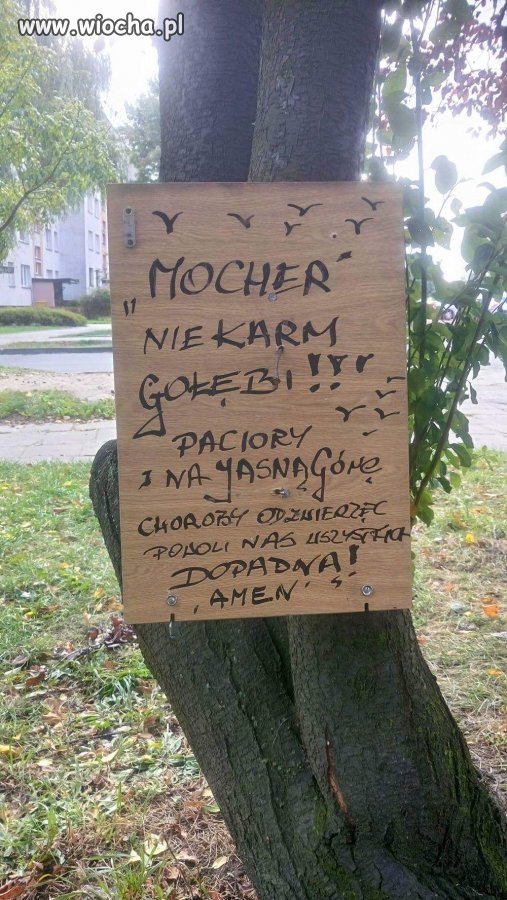 www.wiocha.pl
„MOCHER"
NIE KARM
GOŁĘBI!!!
PACIORY
I NA JASNĄ GÓRĘ
CHOROBY ODZWIERZĘC
POWOLI NAS WSZYSTKICH
DOPADNĄ!
"AMEN"